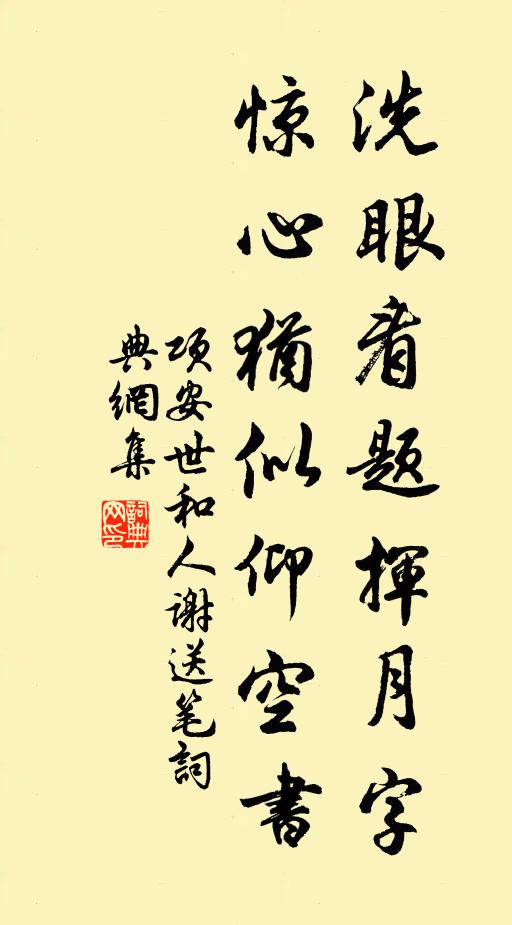 洗眼看题揮月字
惊心猶似仰空書
项安世和人謝送笔詞
典網集
詞典
网印